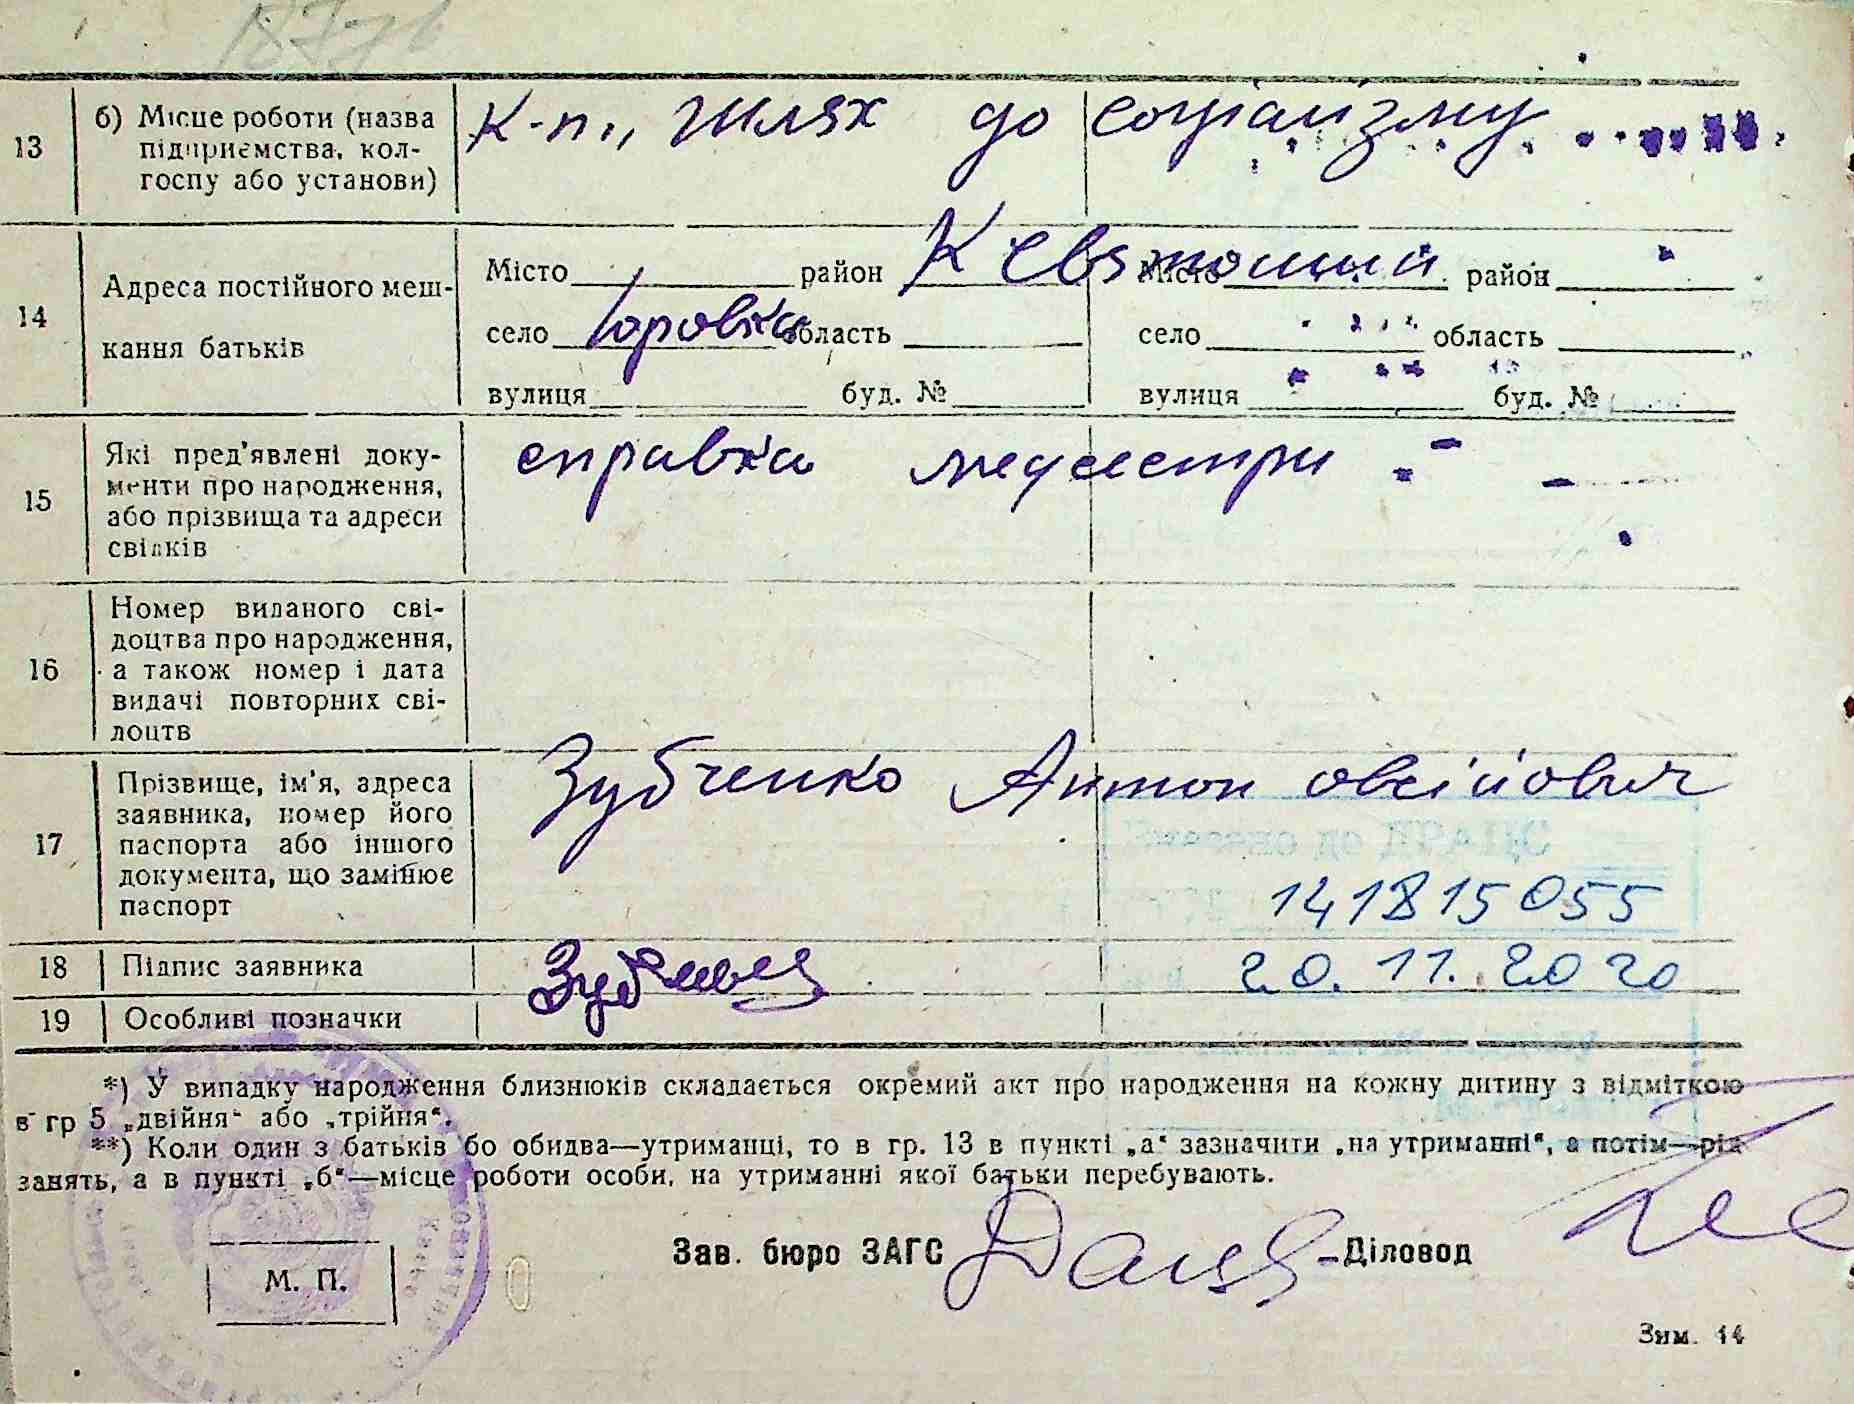 13 б) Місце роботи (назва підприємства, колгоспу або установи) К-п „ Шлях до соціалізму
14 Адреса постійного мешкання батьків
Місто район Місто район
село Юровка область село область
вулиця буд. № вулиця буд. №
15 Які пред'явлені документи про народження, або прізвища та адреси свідків справка медсестри
16 Номер виданого свідоцтва про народження, а також номер і дата видачі повторних свідоцтв
17 Прізвище, ім'я, адреса заявника, номер його паспорта або іншого документа, що замінює паспорт Зубченко Антон овсійович
141815055
18 Підпис заявника
20.11.2020
19 Особливі позначки
*) У випадку народження близнюків складається окремий акт про народження на кожну дитину з відміткою
в гр 5 „двійня“ або „трійня“.
**) Коли один з батьків бо обидва—утриманці, то в гр. 13 в пункті „а“ зазначити „на утриманні“, а потім—рід
занять, а в пункті „б“—місце роботи особи, на утриманні якої батьки перебувають.
Зав. бюро ЗАГС Діловод
М. П.
Зим. 14